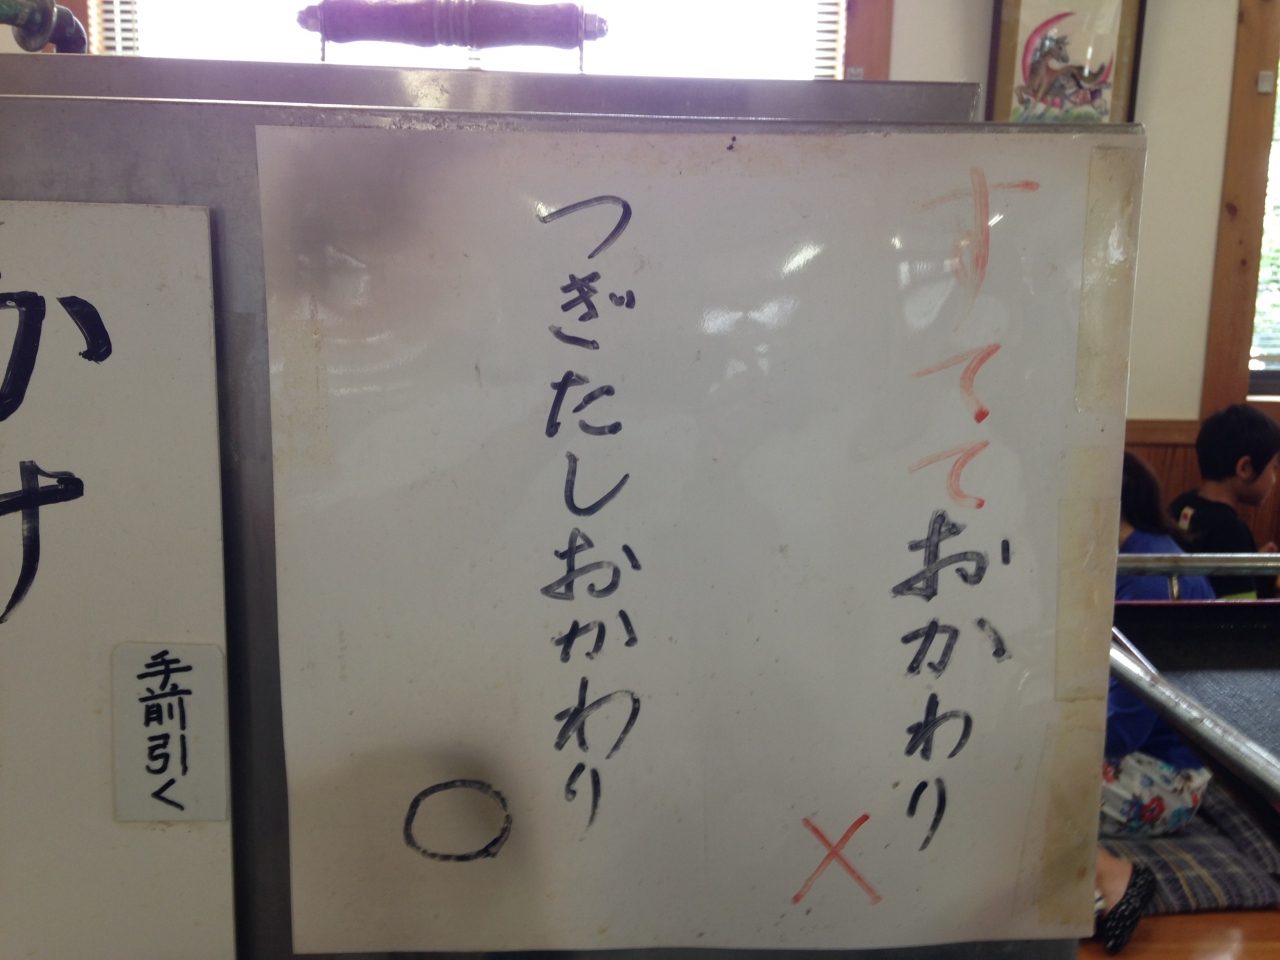 すてておかわり
×
つぎたしおかわり
○
手前引く